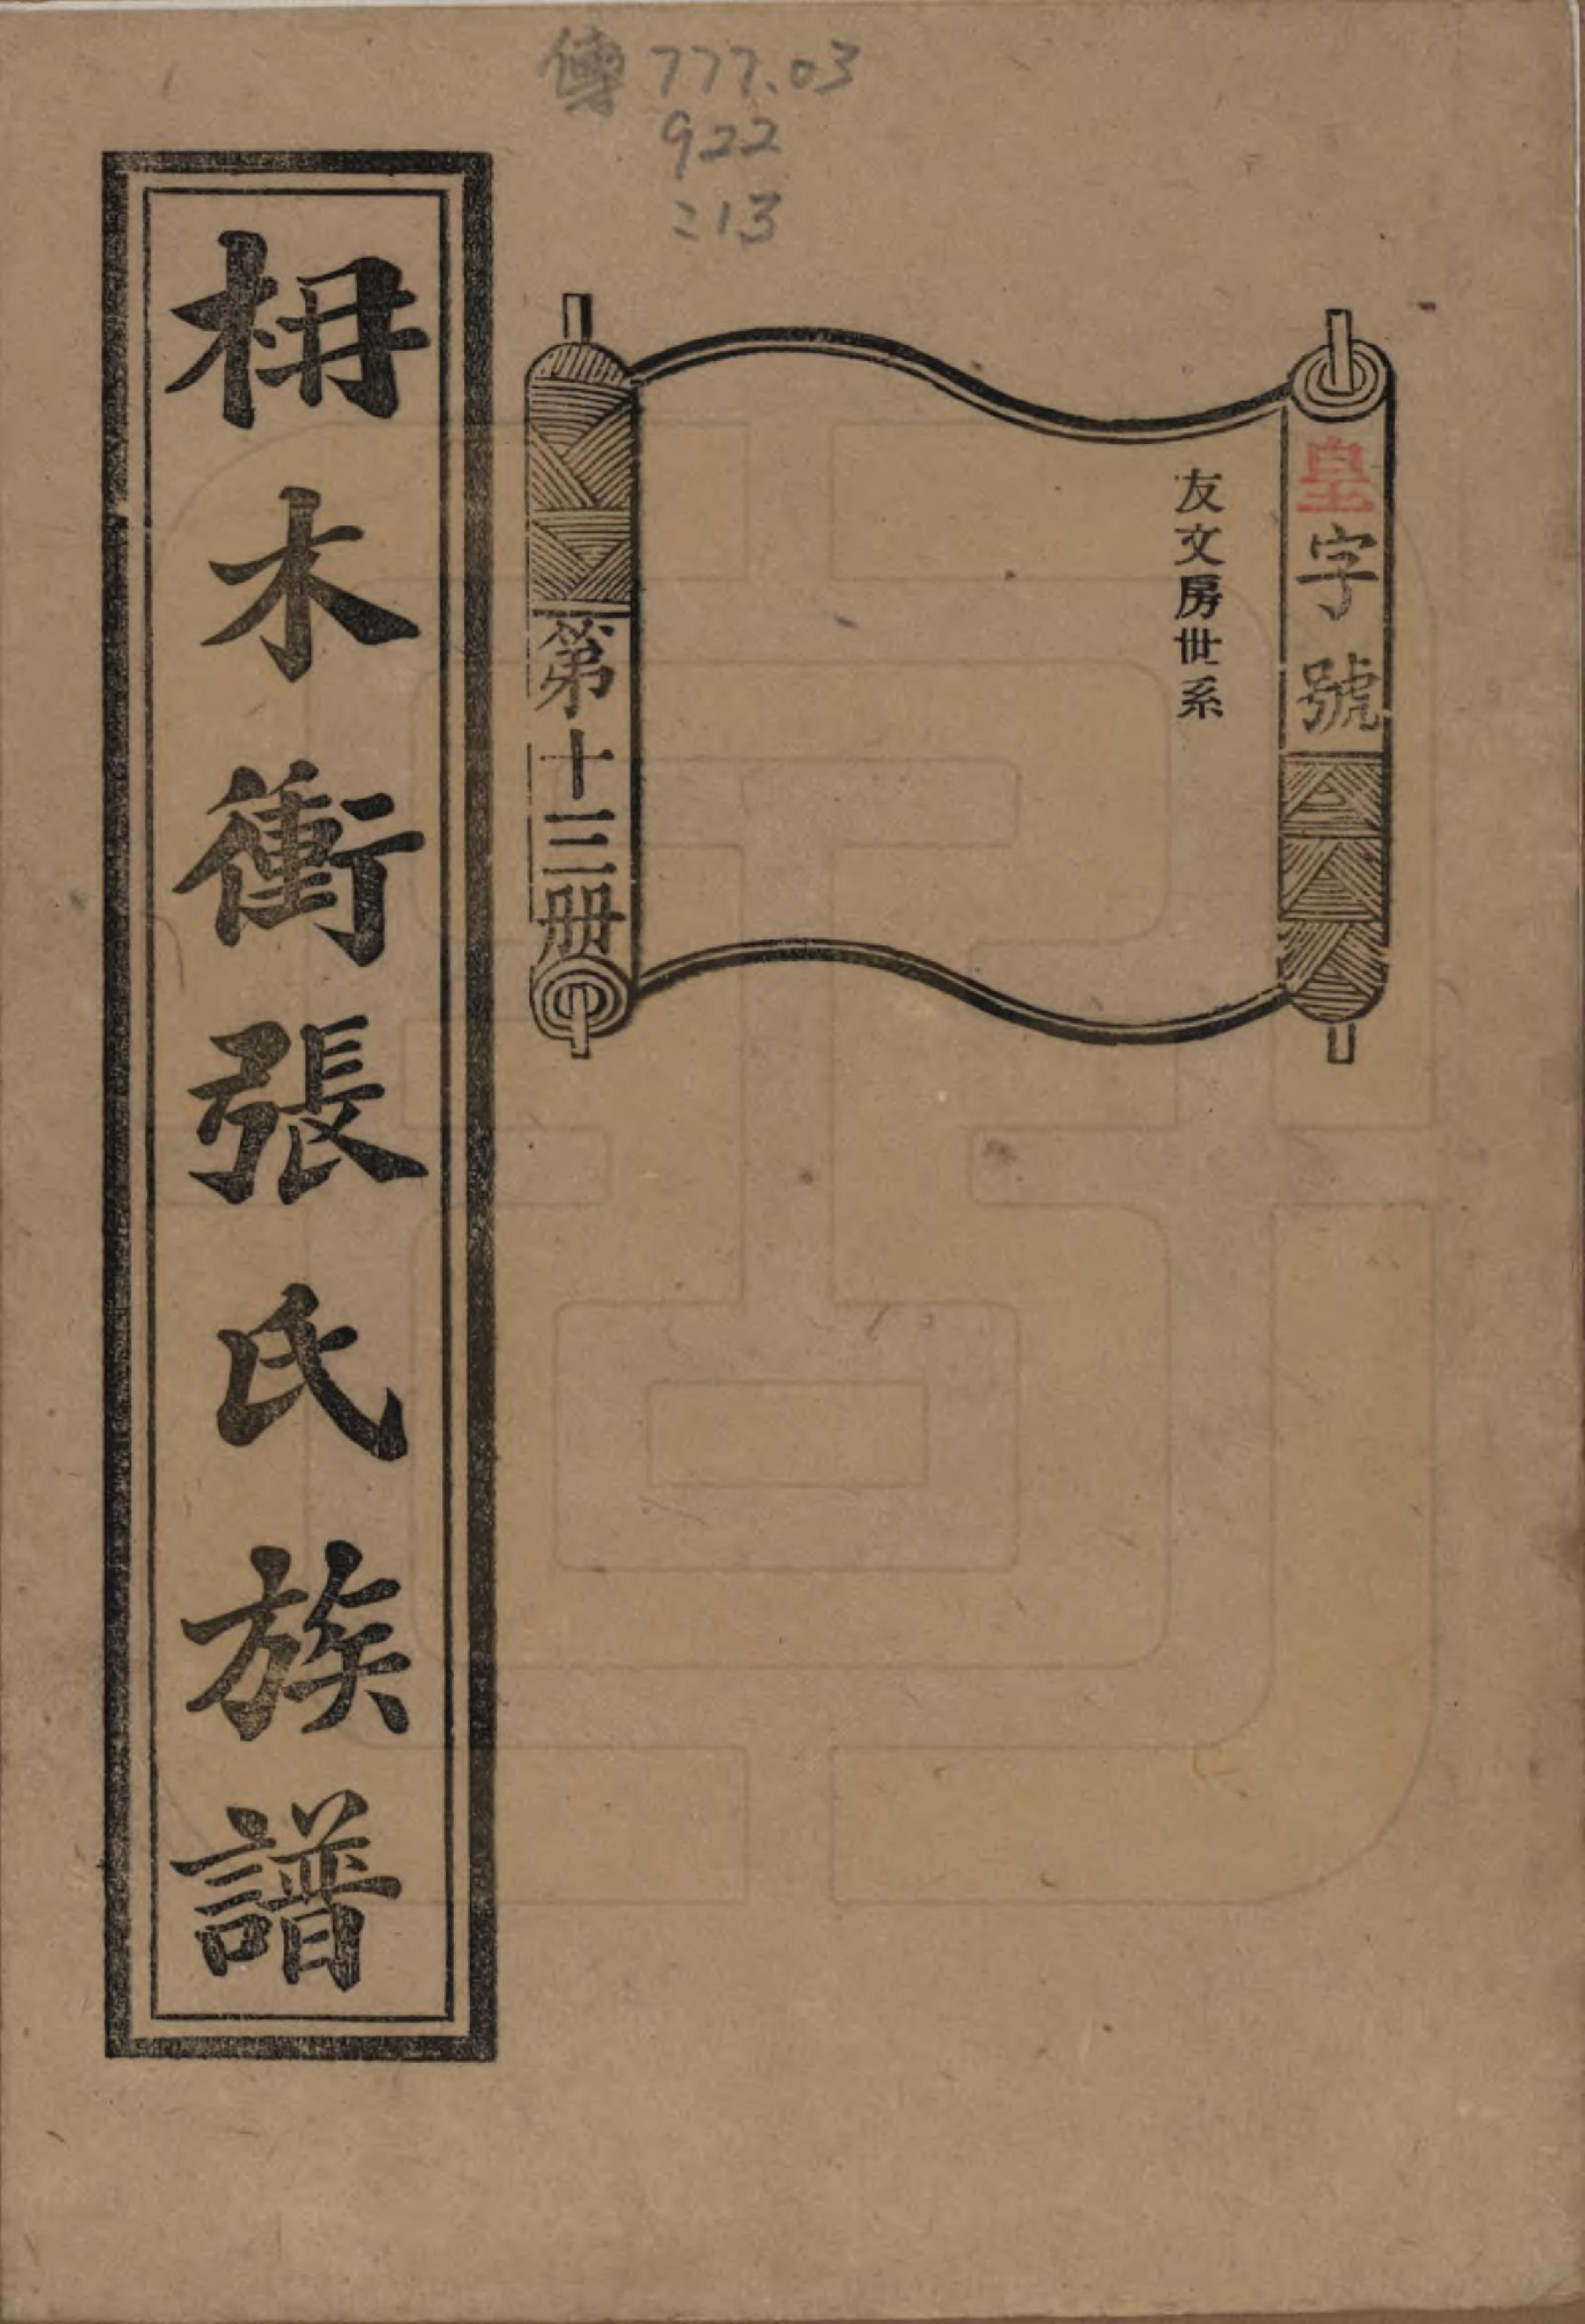 傳 777.03
922
:13
皇字號
友文房世系
第十三册
枏木衝張氏族譜